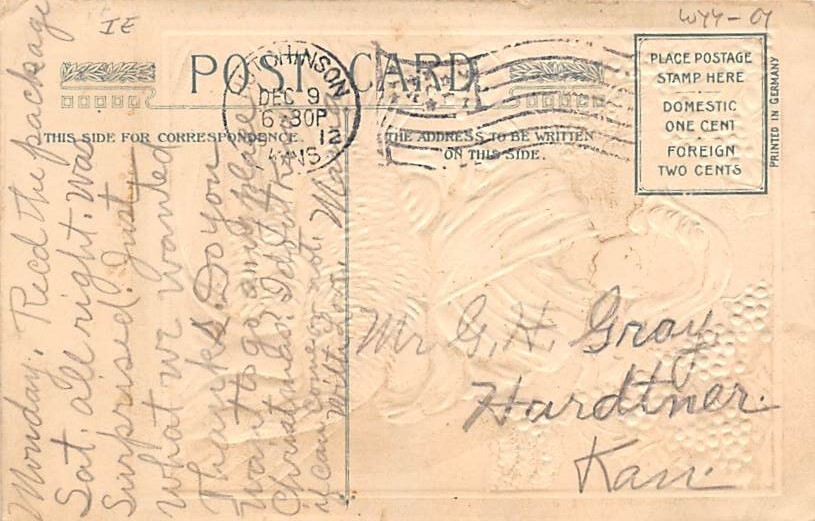 IE
WYY-07
POST CARD
HUTCHINSON
DEC 9
6-30P
12
KANS
PLACE POSTAGE
STAMP HERE
DOMESTIC
ONE CENT
FOREIGN
TWO CENTS
PRINTED IN GERMANY
THIS SIDE FOR CORRESPONDENCE.
THE ADDRESS TO BE WRITTEN
ON THIS SIDE.
Monday, Recd the package
Sat. all right. Was
Surprised. Just
what we wanted
Thanks. Do you
want to go any place
Christmas? I don't know
if can come or not.
Will
Mr G. H. Gray
Hardtner.
Kan.